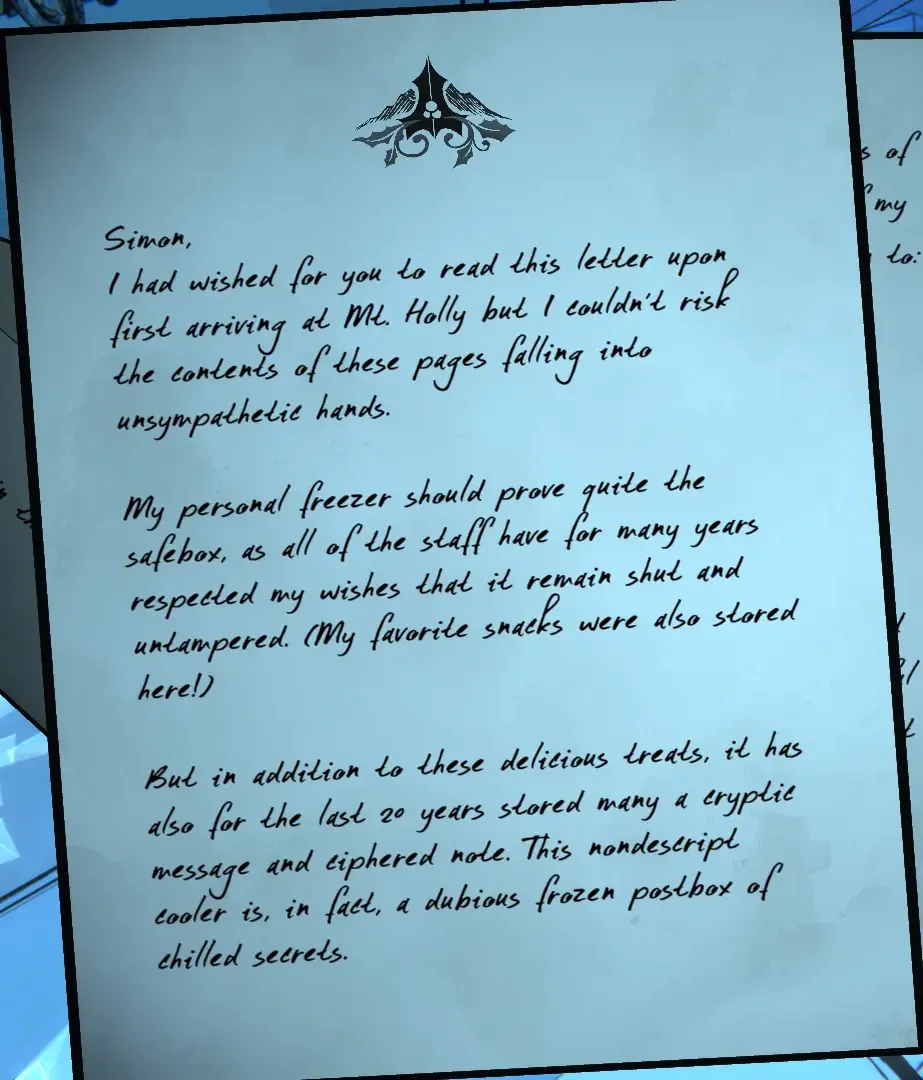 Simon,
I had wished for you to read this letter upon
first arriving at Mt. Holly but I couldn't risk
the contents of these pages falling into
unsympathetic hands.
My personal freezer should prove quite the
safebox, as all of the staff have for many years
respected my wishes that it remain shut and
untampered. (My favorite snacks were also stored
here!)
But in addition to these delicious treats, it has
also for the last 20 years stored many a cryptic
message and ciphered note. This nondescript
cooler is, in fact, a dubious frozen postbox of
chilled secrets.
of
my
to: